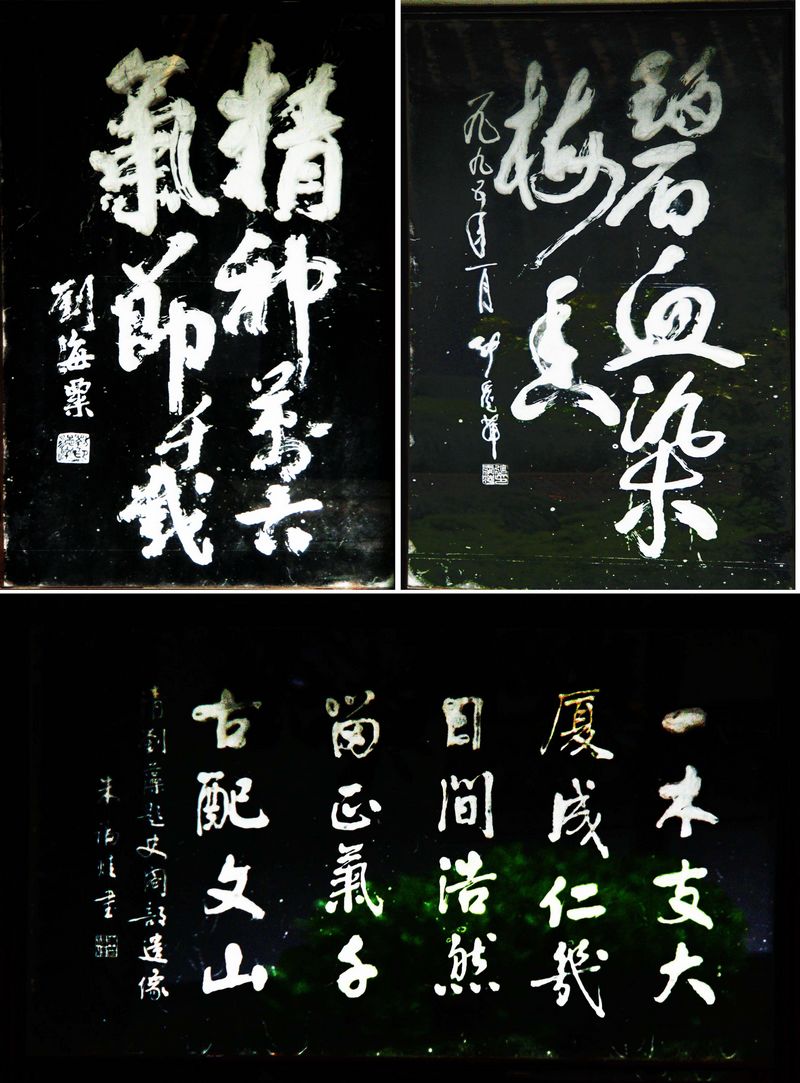 精神萬古
氣節千載
劉海粟
碧血染
梅香
一九九五年一月
一木支大
廈成仁幾
日間浩然
留正氣千
古配文山
清劉藻題史閣部遺像
朱福烓書